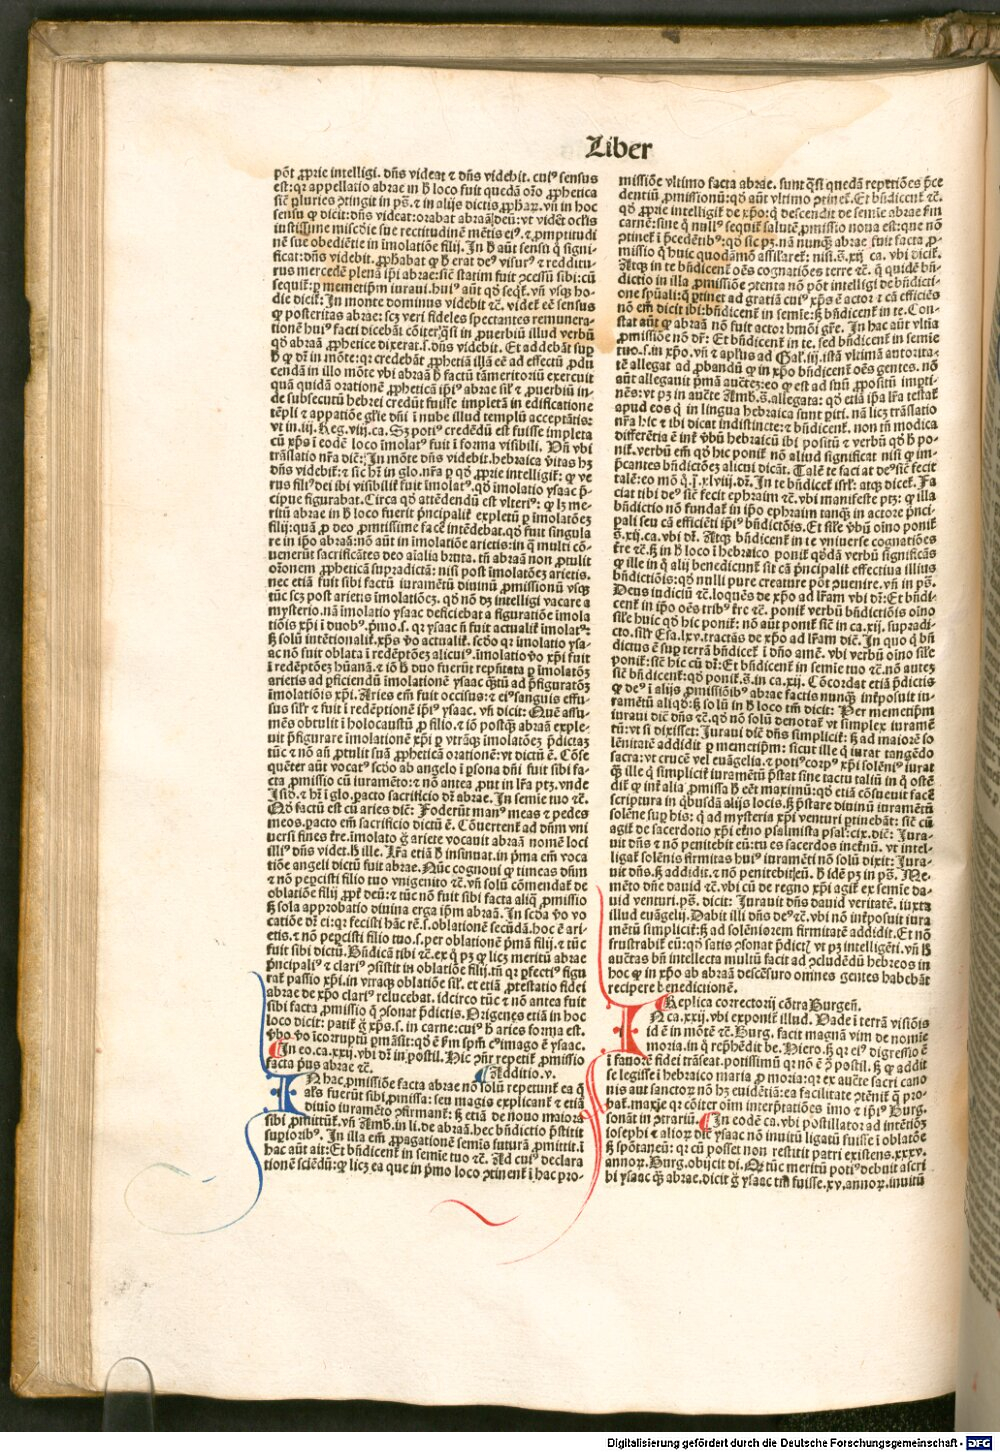 Liber
põt ꝓprie intelligi. dñs videat ⁊ dñs videbit. cuiꝰ sensus
est: qꝛ appellatio abrae in h̃ loco fuit quedã oꝛo ꝓphetica
sic̃ pluries ꝯtingit in ps̃. ⁊ in alijs dictis ꝓphaꝝ. vñ in hoc
sensu ꝙ dicit: dñs videat: orabat abraã deũ: vt videret oclis
iusticie sue rectitudinẽ mẽtis eiꝰ. ⁊ ꝓmptitudi
nẽ sue obediẽtie in ĩmolatiõe filij. In h̃ aũt sensu ꝙ signi-
ficat: dñs videbit. ꝓphabat ꝙ h̃ erat deꝰ visurꝰ ⁊ redditu
rus mercedẽ plenã ip̃i abrae: sic̃ statim fuit ꝯcessũ sibi: cũ
sequit̃: ꝑ memetip̃m iuraui. huiꝰ aũt qd̃ seqt̃. vñ vsqꝫ ho-
die dicit̃: In monte dominus videbit ⁊c̃. videt̃ eẽ sensus
ꝙ posteritas abrae: scꝫ veri fideles spectantes remunera-
tionẽ huiꝰ facti dicebãt cõiter: q̃si in ꝓuerbiũ illud verbũ
qd̃ abraã ꝓphetice dixerat. s. dñs videbit. Et addebãt suꝑ
h̃ ꝙ dr̃ in mõte: qꝛ credebãt ꝓphetiã illã eẽ ad effectũ ꝓdu
cendã in illo mõte vbi abraã h̃ factũ tã meritoriũ exercuit
quã quidã orationẽ ꝓpheticã ip̃iꝰ abrae sil̃ ⁊ ꝓuerbiũ in-
de subsecutũ hebrei credũt fuisse impletã in edificatione
tẽpli ⁊ appatiõe gl̃ie dñi ĩ nube illud templũ acceptãtis:
vt in .iij. Reg. viij. ca. Sꝫ potiꝰ credẽdũ est fuisse impleta
cũ xp̃s ĩ eodẽ loco ĩmolatꝰ fuit ĩ forma visibili. Vñ vbi
trãslatio nr̃a dic̃: In mõte dñs videbit. hebraica ṽitas hꝫ
dñs videbit̃: ⁊ sic hr̃ in glo. nr̃a ꝑ qd̃ ꝓprie intelligit̃: ꝙ ve
rus filiꝰ dei ibi visibilit̃ fuit ĩmolatꝰ. qd̃ ĩmolatio ysaac p̃-
cipue figurabat. Circa qd̃ attẽdendũ est vlteriꝰ: ꝙ lꝫ me-
ritũ abrae in h̃ loco fuerit p̃ncipalit̃ expletũ ꝑ ĩmolatõeꝫ
filij: quã ꝓ deo ꝓmtissime facẽ intẽdebat. qd̃ fuit singula
re in ip̃o abraã: nõ aũt in ĩmolatiõe arietis: in q̃ multi cõ-
uenerũt sacrificãtes deo aĩalia bruta. tñ abraã non ꝓtulit
oꝛonem ꝓpheticã supradictã: nisi post ĩmolatõeꝫ arietis.
nec etiã fuit sibi factũ iuramẽtũ diuinũ ꝓmissionũ vsqꝫ
tũc scꝫ post arietis ĩmolatiõeꝫ. qd̃ nõ dꝫ intelligi vacare a
mysterio. nã ĩmolatio ysaac deficiebat a figuratiõe ĩmola
tiõis xp̃i ĩ duobꝰ. p̃mo. s. qꝛ ysaac ñ fuit actualit̃ ĩmolatꝰ:
sꝫ solũ intẽtionalit̃. xp̃s ṽo actualit̃. scd̃o qꝛ ĩmolatio ysa-
ac nõ fuit oblata ĩ redẽptõeꝫ alicuiꝰ. ĩmolatio ṽo xp̃i fuit
ĩ redẽptõeꝫ hũanã. ⁊ iõ h̃ duo fuerũt rep̃sitata ꝑ ĩmolatõꝫ
arietis ad ꝑficiendũ ĩmolationẽ ysaac q̃tũ ad p̃figuratõꝫ
ĩmolatiõis xp̃i. Aries em̃ fuit occisus: ⁊ eiꝰ sanguis effu-
sus sil̃r ⁊ fuit ĩ redẽptionẽ ip̃iꝰ ysaac. vñ dicit: Quẽ assu-
mẽs obtulit ĩ holocaustũ ꝓ filio. ⁊ iõ postq̃ꝫ abraã exple-
uit p̃figurare ĩmolationẽ xp̃i ꝑ vtrãqꝫ ĩmolatõeꝫ p̃dictaꝫ
tũc ⁊ nõ añ ꝓtulit suã ꝓpheticã orationẽ: vt dictũ ẽ. Cõse
quẽter aũt vocatꝰ scd̃o ab angelo ĩ ꝑsona dñi fuit sibi fa-
cta ꝓmissio cũ iuramẽto: ⁊ nõ antea ꝓut in lr̃a ptꝫ. vnde
Isid. ⁊ hr̃ ĩ glo. ꝑacto sacrificio dr̃ abrae. In semie tuo ⁊c̃.
Qd̃ factũ est cũ aries dic̃: Foderũt manꝰ meas ⁊ pedes
meos. ꝑacto em̃ sacrificio dictũ ẽ. Cõuertent̃ ad dñm vni
uersi fines tr̃e. ĩmolato g̃ ariete vocauit abraã nomẽ loci
illiꝰ dñs videt. h̃ ille. Lr̃a etiã h̃ insinuat. in p̃ma em̃ voca
tiõe angeli dictũ fuit abrae. Nũc cognoui ꝙ timeas dñm
⁊ nõ peꝑcisti filio tuo vnigenito ⁊c̃. vñ solũ cõmendat̃ de
oblatiõe filij ꝓpt̃ deũ: ⁊ tũc nõ fuit sibi facta aliq̃ ꝓmissio
sꝫ sola approbatio diuina erga ip̃m abraã. In scd̃a ṽo vo
catiõe dr̃ ei: qꝛ fecisti hãc rẽ. s. oblationẽ secũdã. hoc ẽ ari-
etis. ⁊ nõ peꝑcisti filio tuo. s. per oblationẽ p̃mã filij. ⁊ tũc
fuit sibi dictũ. Bñdicã tibi ⁊c̃. ex q̃ pꝫ ꝙ licꝫ meritũ abrae
p̃ncipaliꝰ ⁊ clariꝰ ꝯsistit in oblatiõe filij. tñ qꝛ ꝑfectiꝰ figu
rat̃ passio xp̃i. in vtraqꝫ oblatiõe sil̃. et etiã ꝓtestatio fidei
abrae de xp̃o clariꝰ relucebat. idcirco tũc ⁊ nõ antea fuit
sibi facta ꝓmissio q̃ ꝯsonat p̃dictis. Origenes etiã in hoc
loco dicit: patit̃ g̃ xp̃s. s. in carne: cuiꝰ h̃ aries forma est.
ṽbo ṽo ĩcorruptũ ꝑmãsit: qd̃ ẽ ẽm spm̃ cꝰ imago ẽ ysaac.
In eo. ca. xxij. vbi dr̃ in postil. Hic ꝯñr repetit̃ ꝓmissio
facta p̃us abrae ⁊c̃.
Additio .v.
IN hac ꝓmissiõe facta abrae nõ solũ repetunt̃ ea q̃
als̃ fuerũt sibi ꝓmissa: seu magis explicant̃ ⁊ etiã
diuio iuramẽto ꝯfirmant̃: sꝫ etiã de nouo maiora
sibi ꝓmittũt̃. vñ Amb. in li. de abraã. hec bñdictio p̃stitit
suꝑioribꝰ. In illa em̃ ꝓpagationẽ semĩs futurã ꝓmittit. ĩ
hac aũt ait: Et bñdicent̃ in semie tuo ⁊c̃. Ad cuiꝰ declara
tionẽ sciẽdũ: ꝙ licꝫ ea que in p̃mo loco ꝯtinent̃ ĩ hac pro-
missiõe vltimo facta abrae. sunt q̃si quedã repetiões p̃ce
dentiũ ꝓmissionũ: qd̃ aũt vltimo ꝯtinet̃. Et bñdicent̃ ⁊c̃.
qd̃ ꝓprie intelligit̃ de xp̃o: q̃ descendit de semie abrae ẽm
carnẽ: sine q̃ nullꝰ sequit̃ salutẽ ꝓmissio noua est: que nõ
ꝯtinet̃ ĩ p̃cedẽtibꝰ: qd̃ sic pꝫ. nã nunq̃ꝫ abrae fuit facta ꝓ-
missio q̃ huic quodãmõ assilaret̃: nisi. s̃. xij. ca. vbi dicit̃.
Atqꝫ in te bñdicent̃ oẽs cognatiões terre ⁊c̃. q̃ quidẽ bñ-
dictio in illa ꝓmissiõe ꝯtenta nõ põt intelligi de bñdicti-
one sp̃uali: q̃ ꝑtinet ad gratiã cuiꝰ xp̃s ẽ actor ⁊ cã efficiẽs
nõ em̃ dicit ibi: bñdicent̃ in semie: sꝫ bñdicent̃ in te. Con-
stat aũt ꝙ abraã nõ fuit actor hmõi gr̃e. In hac aũt vltia
ꝓmissiõe nõ dr̃: Et bñdicent̃ in te, sed bñdicent̃ in semie
tuo. s. in xp̃o. vñ ⁊ apl̃us ad Gal̃. iij. istã vltimã autorita-
tẽ allegat ad ꝓbandũ ꝙ in xp̃o bñdicent̃ oẽs gentes. nõ
aũt allegauit p̃mã aucteꝫ: eo ꝙ est ad suũ ꝓpositũ imꝑti-
nẽs: vt pꝫ in aucte Amb. s̃. allegata: qd̃ etiã ip̃a lr̃a testat̃
apud eos q̃ in lingua hebraica sunt ꝑiti. nã licꝫ trãslatio
nr̃a hic ⁊ ibi dicat indistincte: ⁊ bñdicent̃. non tñ modica
differẽtia ẽ int̃ ṽbũ hebraicũ ibi positũ ⁊ verbũ qd̃ h̃ po-
nit̃. verbũ em̃ qd̃ hic ponit̃ nõ aliud significat nisi ꝙ im-
p̃cantes bñdictõeꝫ alicui dicãt. Talẽ te faciat deꝰ sic̃ fecit
talẽ: eo mõ q̃. ĩ. xlviij. dr̃. In te bñdicet̃ isrl̃. atqꝫ dicet̃. Fa
ciat tibi deꝰ sic̃ fecit ephraim ⁊c̃. vbi manifeste ptꝫ: ꝙ illa
bñdictio nõ fundat̃ in ip̃o ephraim tanq̃ꝫ in actore p̃nci-
pali seu cã efficiẽti ip̃iꝰ bñdictõis. Et sil̃e ṽbũ oĩno ponit̃
s̃. xij. ca. vbi dr̃. Atqꝫ bñdicent̃ in te vniuerse cognatiões
tr̃e ⁊c̃. sꝫ in h̃ loco ĩ hebraico ponit̃ qd̃dã verbũ significãs
ꝙ ille in q̃ alij benedicunt̃ sit cã p̃ncipalit̃ effectiua illius
bñdictiõis: qd̃ nulli pure creature põt ꝯuenire. vñ in ps̃.
Deus iudiciũ ⁊c̃. loquẽs de xp̃o ad lr̃am vbi dr̃: Et bñdi-
cent̃ in ip̃o oẽs tribꝰ tr̃e ⁊c̃. ponit̃ verbũ bñdictiõis oĩno
sil̃e huic qd̃ hic ponit̃: nõ aũt ponit̃ sic̃ in ca. xij. supradi-
cto. sil̃r Esa. lxv. tractãs de xp̃o ad lr̃am dic̃. In quo q̃ bñ
dictus ẽ suꝑ terrã bñdicet̃ ĩ dño amẽ. vbi verbũ oĩno sil̃e
ponit̃: sic̃ hic cũ dr̃: Et bñdicent̃ in semie tuo ⁊c̃. nõ autẽ
sic̃ bñdicent̃: qd̃ ponit̃. s̃. in ca. xij. Cõcordat etiã p̃dictis
ꝙ deꝰ ĩ alijs ꝓmissiõibꝰ abrae factis nunq̃ꝫ int̃posuit iu-
ramẽtũ aliqd̃: sꝫ solũ in h̃ loco tm̃ dicit: Per memetip̃m
iuraui dic̃ dñs ⁊c̃. qd̃ nõ solũ denotat̃ vt simplex iuramẽ
tũ: vt si dixisset: Iuraui dic̃ dñs simplicit̃: sꝫ ad maiorẽ so
lẽnitatẽ addidit ꝑ memetip̃m: sicut ille q̃ iurat tangẽdo
sacra: vt crucẽ vel euãgelia. ⁊ potiꝰ corpꝰ xp̃i solẽniꝰ iurat
q̃ꝫ ille q̃ simplicit̃ iuramẽtũ p̃stat sine tactu taliũ in q̃ ostẽ
dit̃ ꝙ int̃ alia ꝓmissa h̃ eẽt maximũ: qd̃ etiã cõsueuit facẽ
scriptura in q̃busdã alijs locis. sꝫ p̃stare diuinũ iuramẽtũ
solẽne suꝑ his: q̃ ad mysteria xp̃i venturi ꝑtinebãt: sic̃ cũ
agit̃ de sacerdotio xp̃i et̃no psalmista psal̃: cix. dic̃: Iura-
uit dñs ⁊ nõ penitebit eũ: tu es sacerdos inet̃nũ. vt intel-
ligat̃ solẽnis firmitas huiꝰ iuramẽti nõ solũ dixit: Iura-
uit dñs. sꝫ addidit. ⁊ nõ penitebit eũ. h̃ idẽ pꝫ in ps̃. Me-
mẽto dñe dauid ⁊c̃. vbi cũ de regno xp̃i agit̃ ex semie da-
uid venturi. ps̃. dicit: Iurauit dñs dauid veritatẽ. iuxta
illud euãgelij. Dabit illi dñs deꝰ ⁊c̃. vbi nõ int̃posuit iura
mẽtũ simplicit̃: sꝫ ad solẽniorem firmitatẽ addidit. Et nõ
frustrabit̃ eũ: qd̃ satis ꝯsonat p̃dictꝰ vt pꝫ intelligẽti. vñ h̃
auctas bñ intellecta multũ facit ad ꝯcludẽdũ hebreos in
hoc ꝙ in xp̃o ab abraã descẽsuro omnes gentes habebãt
recipere benedictionẽ.
Replica correctorij cõtra Burgeñ.
IN ca. xxij. vbi exponit̃ illud. Vade ĩ terrã visiõis
id ẽ in mõtẽ ⁊c̃. Burg. facit magnã vim de nomie
moria. in q̃ rep̃hẽdit be. Hiero. sꝫ qꝛ eiꝰ digressio ẽ
ĩ fauorẽ fidei trãseat. potissimũ qꝛ nõ ẽ ꝯ̃ postil. sꝫ ꝙ addit
se legisse ĩ hebraico maria ꝓ moria: qꝛ ex aucte sacri cano
nis aut sanctoꝝ nõ hꝫ euidẽtiã: ea facilitate ꝯtẽnit̃ q̃ pro-
bat̃. maxĩe qꝛ cõiter oĩm interp̃tatiões ĩmo ⁊ ip̃iꝰ Burg.
sonãt in ꝯtrariũ. In eodẽ ca. vbi postillator ad intẽtiõꝫ
iosephi ⁊ alioꝝ dic̃ ysaac nõ inuitũ ligatũ fuisse ĩ oblatõe
sꝫ spõtaneũ: qꝛ cũ posset non restitit patri existens. xxxv.
annoꝝ. Burg. obijcit di. Qꝛ tũc meritũ potiꝰ debuit ascri
bi ysaac q̃ꝫ abrae. dicit g̃ ysaac tm̃ fuisse. xv. annoꝝ. inuitũ
Digitalisierung gefördert durch die Deutsche Forschungsgemeinschaft - DFG